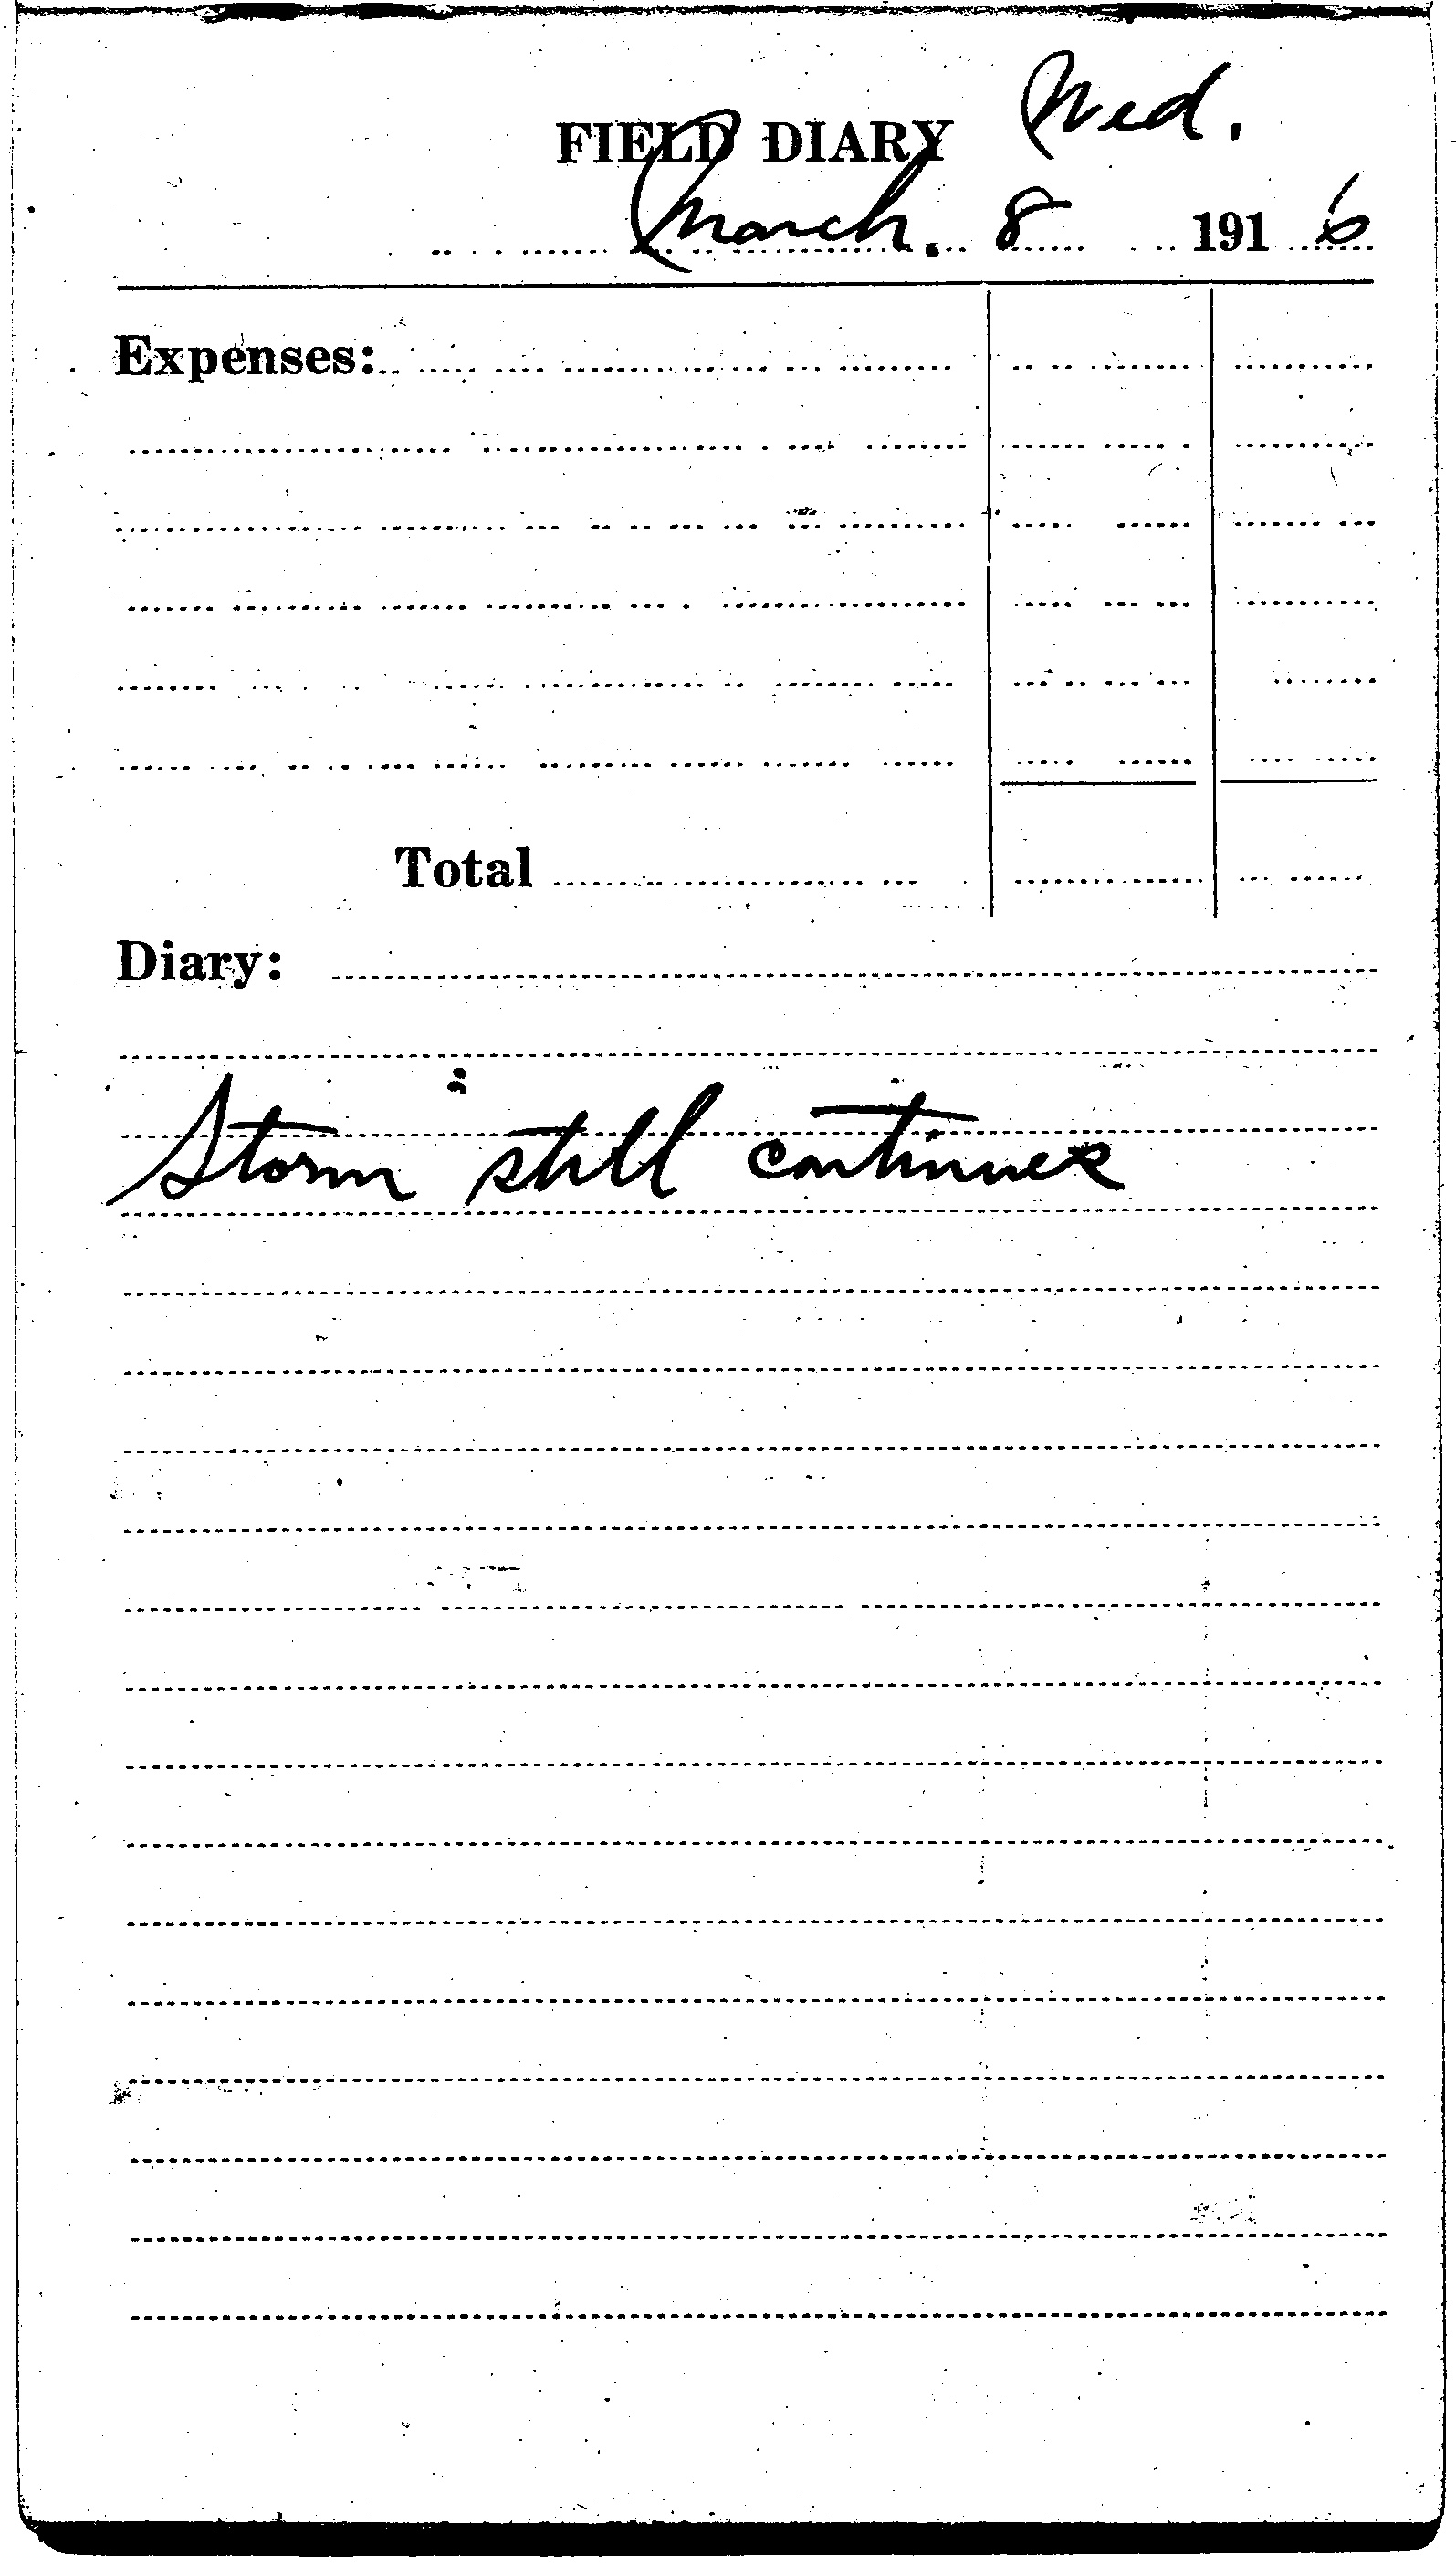 Wed.
FIELD DIARY
March. 8 1916
Expenses:
Total
Diary:
Storm still continues